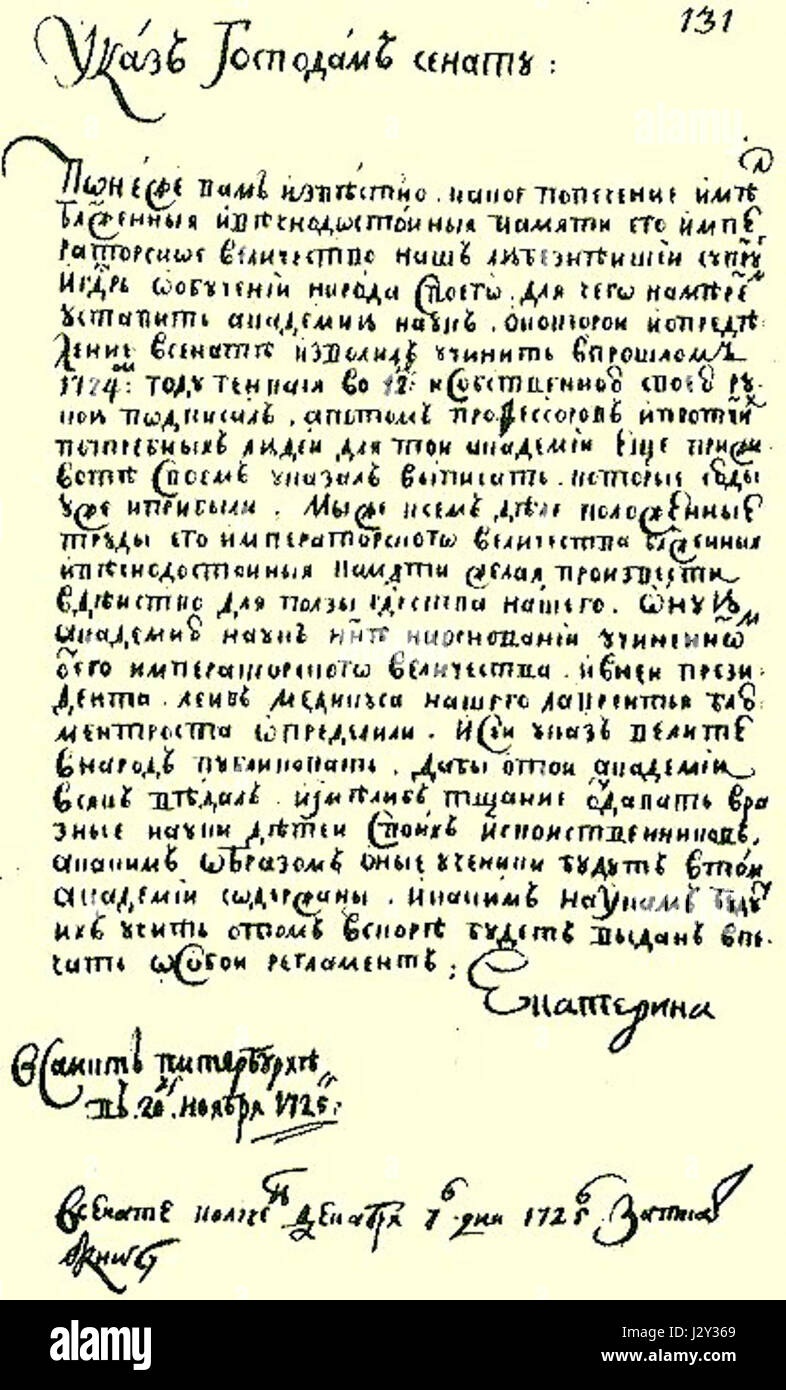 131
Указъ Господамъ сенату :
Понеже вамъ извѣстно . какое попесение имѣл
блаженныя ивѣчнодостойныя памяти его импе
раторское величество нашъ любезнѣишіи супру
игдрь ѡобученіи народа своего . для чего намѣре
уставить академию наукъ . окоторои иопредѣ
ление всенатѣ изволилъ учинить впрошломъ
1724ом: году генваря во 12: исобственною своею ру
кою подписалъ . апотомъ профессоровъ ипротчи
потребныхъ людеи для тои академіи еще прижи
вотѣ своемъ указалъ выписать . которые сюды
уже иприбыли . Мыже всемъ дѣле положенные
труды его императорского величества блаженныя
ивѣчнодостоиныя памяти желая произвести
вдѣиство для ползы ѿдества нашего . ѡную
академию наукъ нне наоснованіи учиненно
ѿего императорского величества . ивнеи прези
дента . леибъ медикуса нашего лаврентья блю
ментроста ѡпределили . исеи указъ велите
внародъ публиковать . Дабы отои академіи
всякъ вѣдалъ . иимѣлибъ тщание ѿдавать вра
зные науки дѣтеи своихъ исвоиственниковъ .
акакимъ ѡбразомъ оные ученики будутъ втои
академіи содержаны . икакимъ наукамъ буду
ихъ учить отомъ вскорѣ будетъ выданъ впе
чать ѡсобои регламентъ ;
Екатерина
Всанктъ питербурхѣ
въ . 20 . ноября 1725г:
Всенате получен декабря 7 . дни 1725 . Записа
вкнигу
alamy
alamy stock photo
J2Y369
www.alamy.com